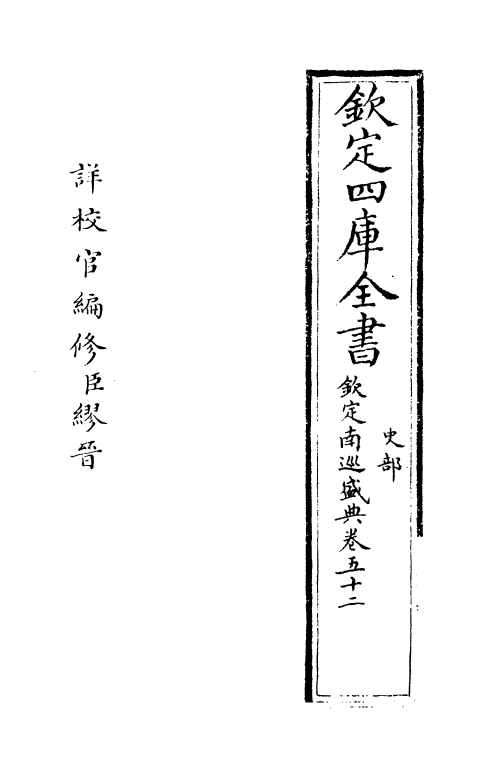 欽定四庫全書
史部
欽定南巡盛典卷五十二
詳校官編修臣繆晉